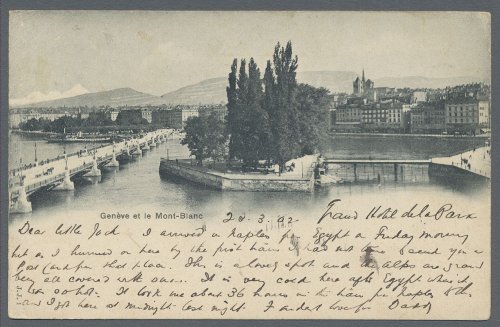 Genève et le Mont-Blanc
20.3.02
Grand Hôtel de la Paix
Dear little Jack I arrived in Naples from Egypt on Friday morning
but as I hurried on here by the first train I had not time to send you a
Post Card from that place. This is a lovely spot and the Alps are grand
being all covered with snow. It is very cold here after Egypt which
was so hot. It took me about 36 hours in the train from Naples to
and I got here at midnight last night. Fondest love from Daddy
J.J.